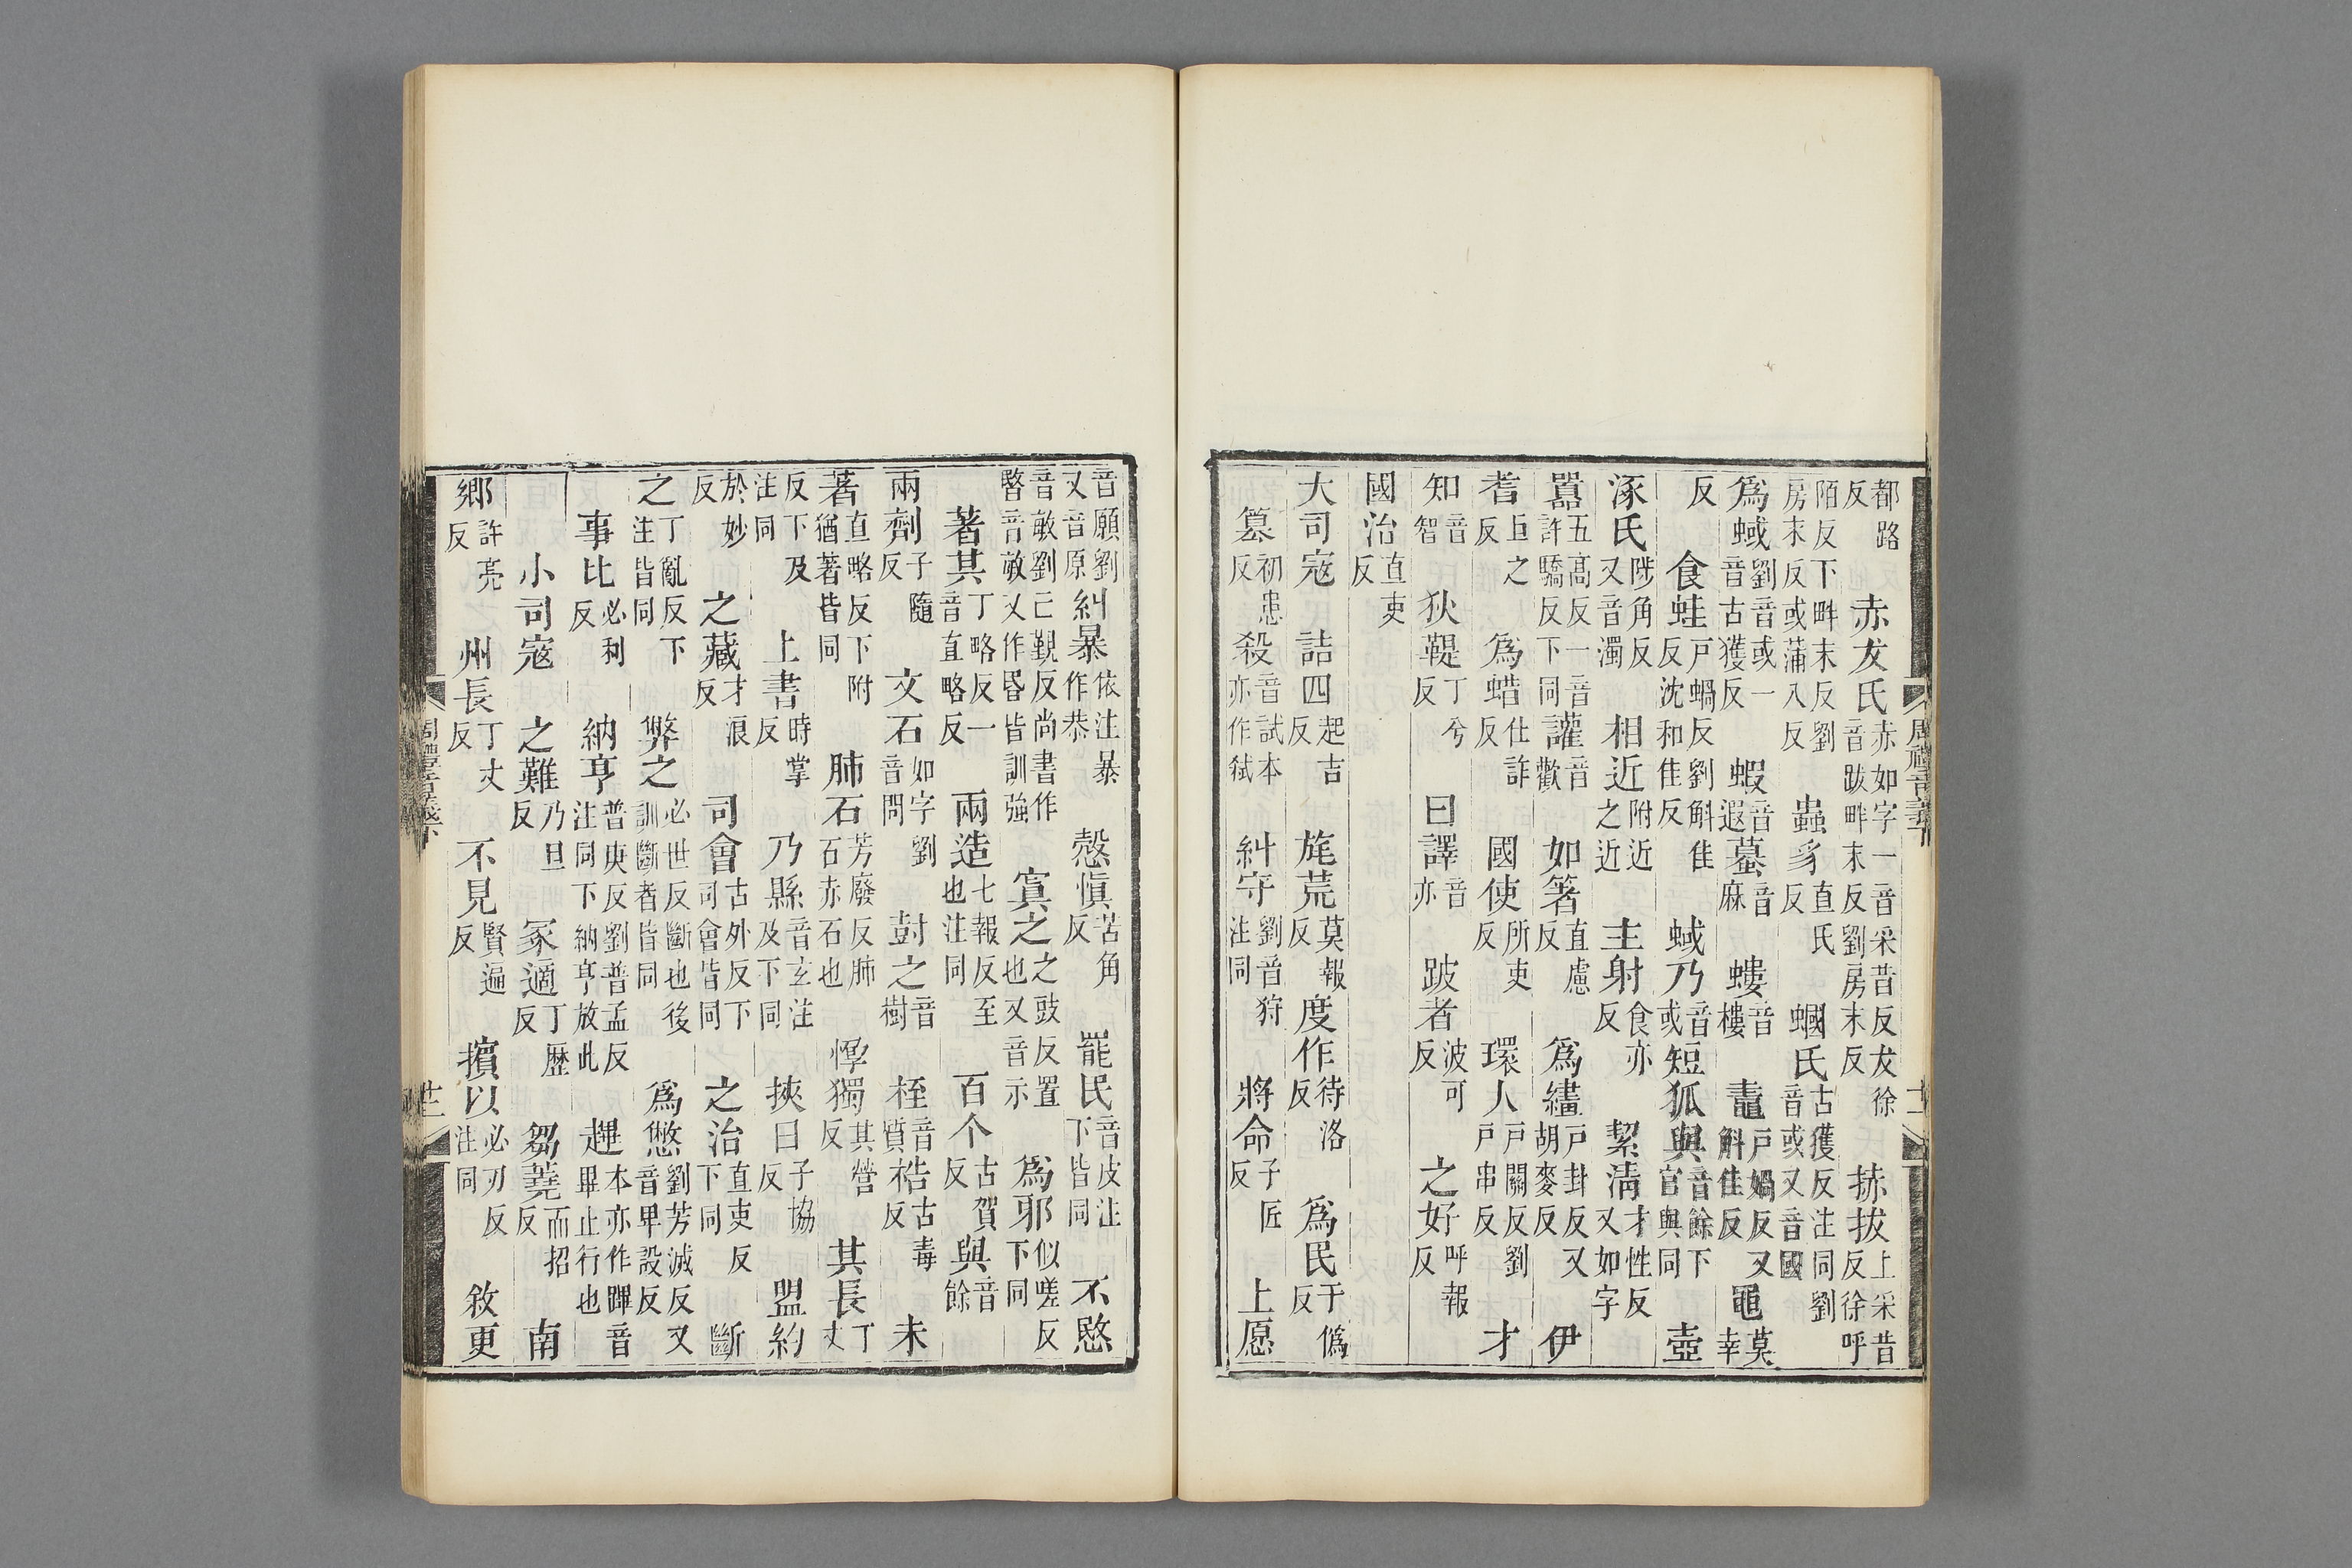 都路反赤犮氏赤如字一音采昔反犮徐音跋畔末反劉房末反捇拔上采昔反徐呼
陌反下畔末反劉房末反或蒲入反蟲豸直氏反蟈氏古獲反注同劉音或又音國
爲蜮劉音或一音古獲反蝦音遐蟇音麻螻音樓鼃戸媧反又斛佳反黽莫幸
反食蛙戸蝸反劉斛佳反沈和佳反蜮乃音或短狐與音餘下官與同壺
涿氏陟角反又音濁相近附近之近主射食亦反絜淸才性反又如字
嚚五髙反一音許驕反下同讙音歡如箸直慮反爲繣戸卦反又胡麥反伊
耆巨之反爲蜡仕詐反國使所吏反環人戸關反劉戸串反才
知音智狄鞮丁兮反曰譯音亦跛者波可反之好呼報反
國治直吏反
大司寇詰四起吉反旄荒莫報反度作待洛反爲民于僞反
篡初患反殺音試本亦作弑糾守劉音狩注同將命子匠反上愿
音願劉又音原糾暴依注暴作恭慤愼苦角反罷民音皮注下皆同不愍
音敏劉亡覲反尚書作暋音敃又作昬皆訓強寘之之豉反置也又音示爲邪似嗟反下同
著其丁略反一音直略反兩造七報反至也注同百个古賀反與音餘
兩劑子隨反文石如字劉音問封之音樹桎音質梏古毒反未
著直略反下附猶著皆同肺石芳廢反肺石赤石也惸獨其營反其長丁丈
反下及注同上書時掌反乃縣音玄注及下同挾日子協反盟約
於妙反之藏才浪反司會古外反下司會皆同之治直吏反下同斷
之丁亂反下注皆同弊之必世反斷也後訓斷者皆同爲憋劉芳滅反又音畀設反
事比必利反納亨普庚反劉普孟反注同下納亨放此趩本亦作蹕音畢止行也
小司寇之難乃旦反冢適丁歴反芻蕘而招反南
鄉許亮反州長丁丈反不見賢遍反擯以必刃反注同敘更